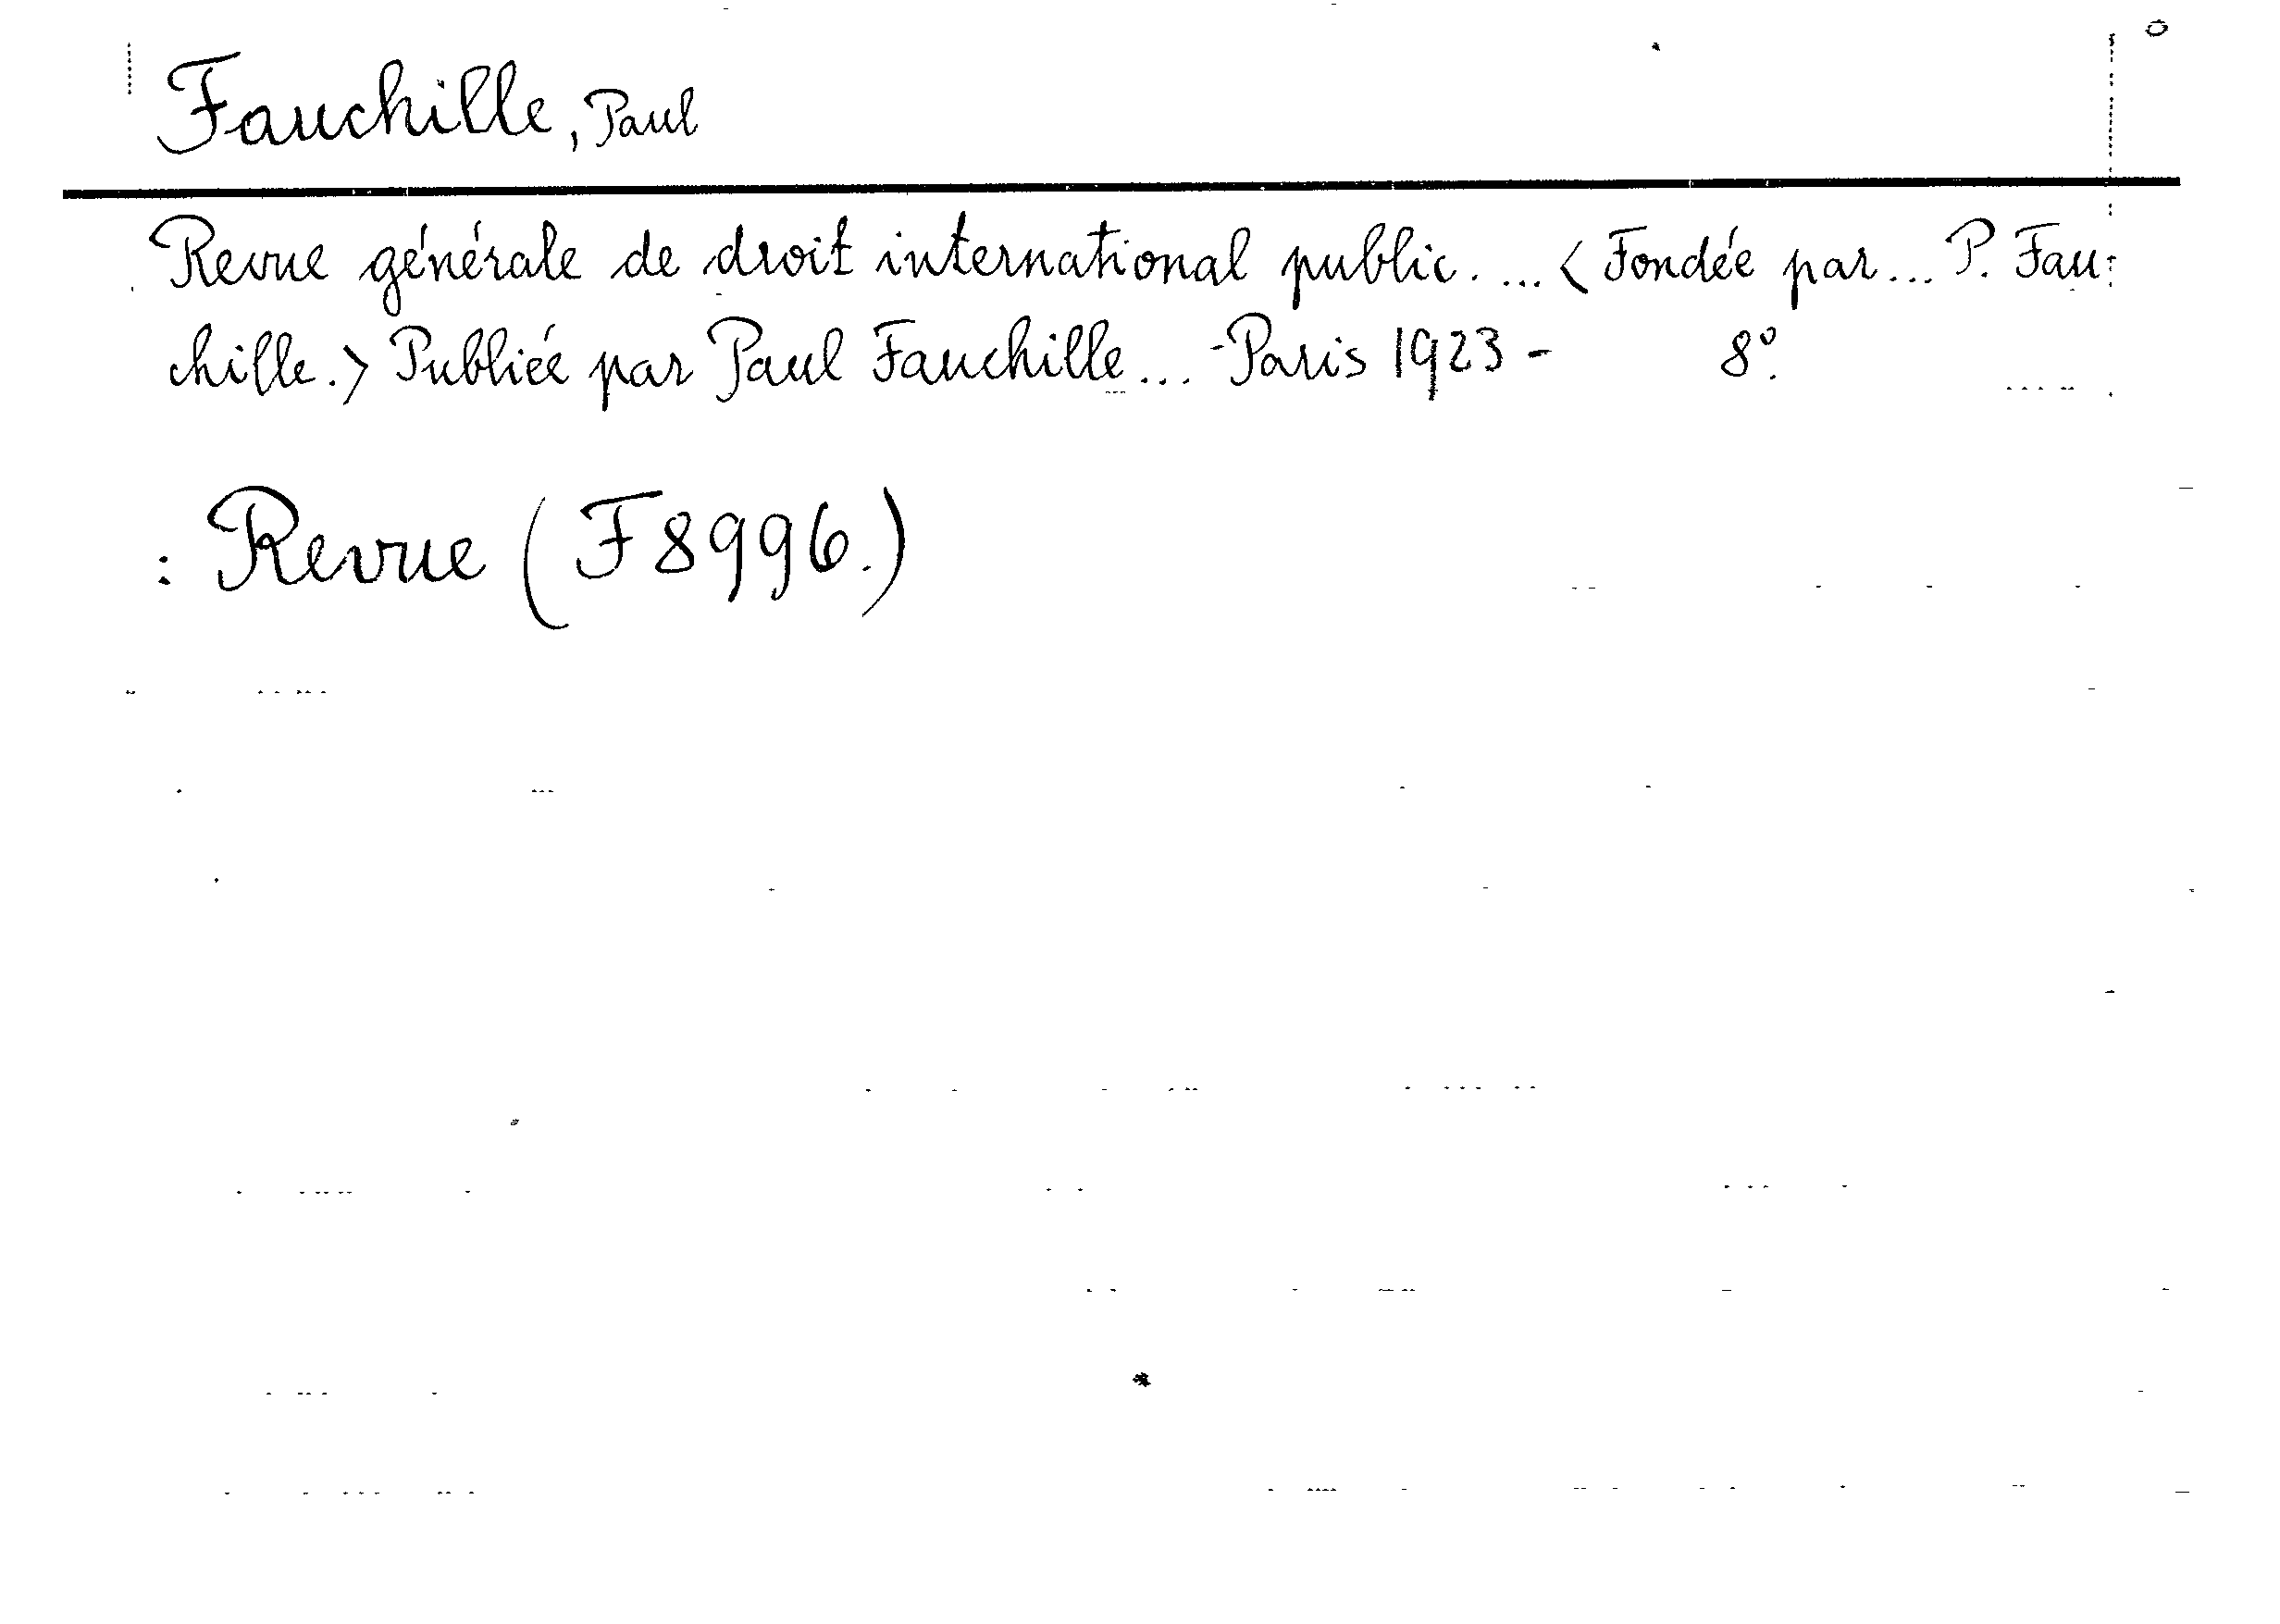 Fauchille, Paul
Revue générale de droit international public. ... < Fondée par ... P. Fau-
chille. > Publiée par Paul Fauchille ... - Paris 1923 - 8°.
: Revue (F 8996.)